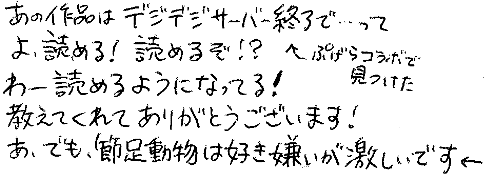 あの作品はデジデジサーバー終了で…って
よ、読める！読めるぞ！？
↖ぷげらコラボで
見つけた
わー読めるようになってる！
教えてくれてありがとうございます！
あ、でも、節足動物は好き嫌いが激しいです←